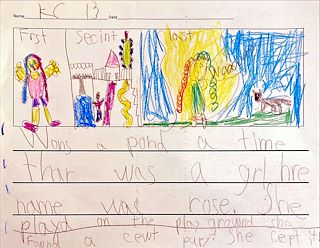 Name KC 13 Date
First Secint last
Wons a pond a time
thar was a grl hre
name was rose. She
playd on the play ground she
found a cewt pupy. She